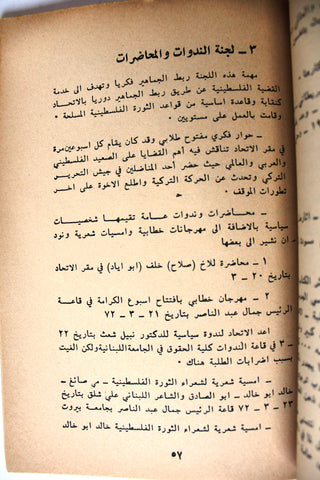 ٣ ـ لجنة الندوات والمحاضرات
مهمة هذه اللجنة ربط الجماهير فكريا وتهدف الى خدمة
القضية الفلسطينية عن طريق ربط الجماهير دوريا بالاتحاد
كنقابة وقاعدة اساسية من قواعد الثورة الفلسطينية المسلحة ٠
وقامت بالعمل على مستويين ٠
ـ حوار فكري مفتوح طلابي وقد كان يقام كل اسبوعين مرة
في مقر الاتحاد تناقش فيه اهم القضايا على الصعيد الفلسطيني
والعربي والعالمي حيث حضر أحد المناضلين في جيش التحرير
التركي وتحدث عن الحركة التركية واطلع الاخوة على اخر
تطورات الموقف ٠
ـ محاضرات وندوات عامة تقيمها شخصيات
سياسية بالاضافة الى مهرجانات خطابية وامسيات شعرية ونود
ان نشير الى بعضها
١ ـ محاضرة للاخ (صلاح) خلف (ابو اياد) في مقر الاتحاد
بتاريخ ٢٠ ـ ٣
٢ ـ مهرجان خطابي بافتتاح اسبوع الكرامة في قاعة
الرئيس جمال عبد الناصر بتاريخ ٢١ ـ ٣ ـ ٧٢
اعد الاتحاد لندوة سياسية للدكتور نبيل شعث بتاريخ ٢٢
ـ ٣ في قاعة الندوات كلية الحقوق في الجامعة اللبنانية ولكن الغيت
بسبب اضرابات الطلبة هناك ٠
ـ امسية شعرية لشعراء الثورة الفلسطينية ـ مي صائغ ـ
خالد ابو خالد ـ ابو الصادق والشاعر اللبناني علي شلق بتاريخ
٢٣ ـ ٣ ـ ٧٢ قاعة الرئيس جمال عبد الناصر بجامعة بيروت
ـ امسية شعرية لشعراء الثورة الفلسطينية خالد ابو خالد
٥٧